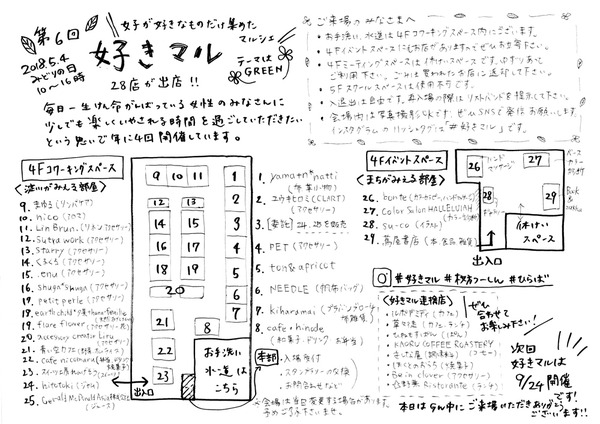 第6回
2018.5.4
みどりの日
10〜16時
女子が好きなものだけ集めた
マルシェ
好きマル
テーマは
GREEN
28店が出店!!
毎日一生けん命がんばっている女性のみなさんに
少しでも楽しくいやされる時間を過ごしていただきたい
という思いで年に4回開催しています。
ご来場のみなさまへ
お手洗い、水道は4Fコワーキングスペース内にございます。
4Fイベントスペースにもお店がありますのでぜひお立寄下さい。
4Fミーティングスペースは休けいスペースです。
ご利用下さい。
5Fスクールスペースは使用不可です。
入退出は自由です。再入場の際はリストバンドを提示して下さい。
会場内は写真撮影OKです。ぜひSNSで発信お願いします。
インスタグラムのハッシュタグは「#好きマル」です。
4Fコワーキングスペース
〈淀川がみえる部屋〉
9. まゆる(リンパケア)
10. nico(アロマ)
11. Lin Brun.(リネンアクセサリー)
12. Sutra work(アクセサリー)
13. Starry(アクセサリー)
14. くるくろ(アクセサリー)
15. .enu(アクセサリー)
16. Shuga*Shuga(アクセサリー)
17. petit perle(アクセサリー)
19. flare flower(アクセサリー・花)
20. accessory creator Liru
21. 青い空カフェ
22. cafe nicomaru
24. hitotoki(ジャム)
(ジュース)
9 10 11
12 13
14 15
16 17
18 19
20
21
22
23
8
1
2
3
4
5
6
7
お手洗い
水道は
こちら
出入口
1. yamato*natti
(布小物)
2. ユウキヒロミ(CLART)
(アクセサリー)
3. [委託]
4. PET(アクセサリー)
5. ton&apricot
6. NEEDLE(帆布バッグ)
7. kiharamai
8. cafe・hinode
(和菓子・ドリンク・お弁当)
本部
・入場受付
・スタンプラリー交換
・お問合わせなど
※会場は当日変更する場合があります。
予めご了承下さいませ。
4Fイベントスペース
〈まちがみえる部屋〉
26. bonte
27. Color Salon HALLELUJAH
28. su-co(イラスト)
29. 蔦屋書店(本・食品・雑貨)
26 ハンドマッサージ
27
28
29
Book
休けい
スペース
出入口
#好きマル #枚方つーしん #ひらば
〈好きマル連携店〉
ぜひ
合わせて
お楽しみ下さい!
KAORU COFFEE ROASTERY
(コーヒー)
Be in clover(アクセサリー)
Ristorante(ランチ)
次回
好きマルは
9/24開催
です!
本日はGW中にご来場いただきありがとう
ございます!!